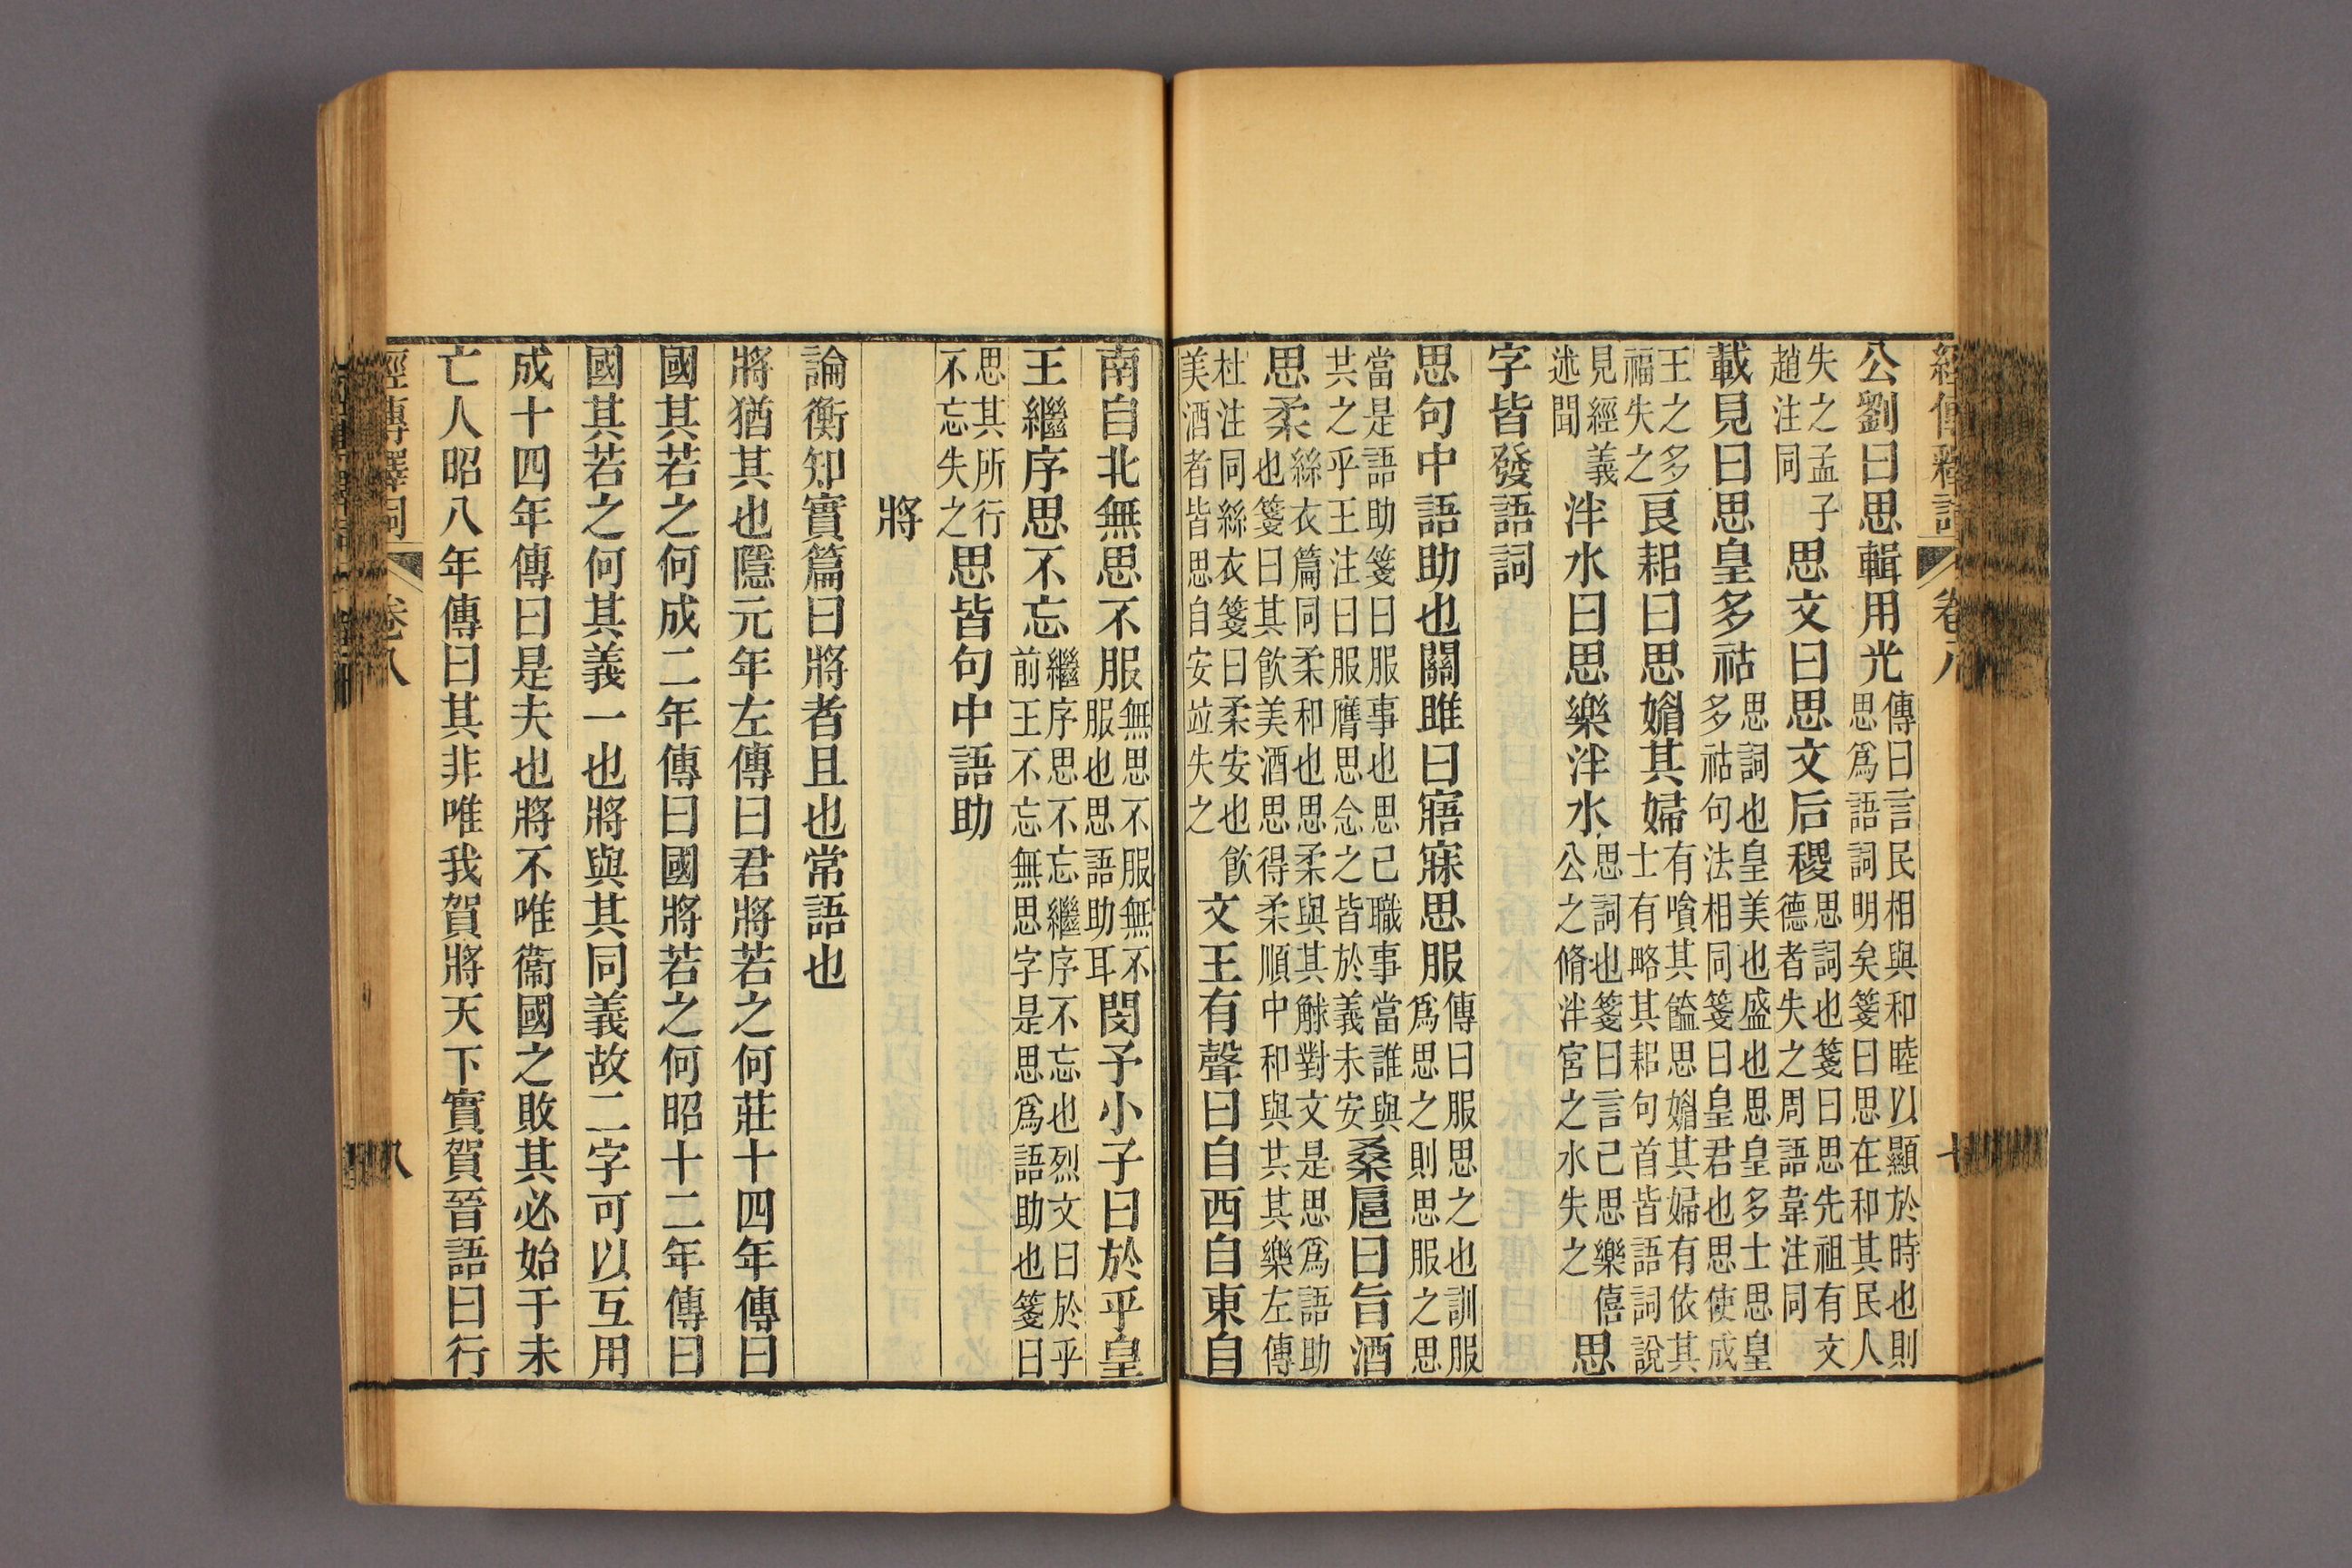 經傳釋詞 卷八 七
公劉曰思輯用光傳曰言民相與和睦以顯於時也則思爲語詞明矣箋曰思在和其民人
失之孟子趙注同思文曰思文后稷思詞也箋曰思先祖有文德者失之周語韋注同
載見曰思皇多祜思詞也皇美也盛也思皇多士思皇多祜句法相同箋曰皇君也思使成
王之多福失之良耜曰思媚其婦有嗿其饁思媚其婦有依其士有略其耜句首皆語詞說
見經義述聞泮水曰思樂泮水思詞也箋曰言己思樂僖公之脩泮宮之水失之思
字皆發語詞
思句中語助也關雎曰寤寐思服傳曰服思之也訓服爲思之則思服之思
當是語助箋曰服事也思己職事當誰與共之乎王注曰服膺思念之皆於義未安桑扈曰旨酒
思柔絲衣篇同柔和也思柔與其觩對文是思爲語助也箋曰其飮美酒思得柔順中和與共其樂左傳
杜注同絲衣箋曰柔安也飮美酒者皆思自安竝失之文王有聲曰自西自東自
南自北無思不服無思不服無不服也思語助耳閔予小子曰於乎皇
王繼序思不忘繼序思不忘繼序不忘也烈文曰於乎前王不忘無思字是思爲語助也箋曰
思其所行不忘失之思皆句中語助
將
論衡知實篇曰將者且也常語也
將猶其也隱元年左傳曰君將若之何莊十四年傳曰
國其若之何成二年傳曰國將若之何昭十二年傳曰
國其若之何其義一也將與其同義故二字可以互用
成十四年傳曰是夫也將不唯衞國之敗其必始于未
亡人昭八年傳曰其非唯我賀將天下實賀晉語曰行
經傳釋詞 卷八 八